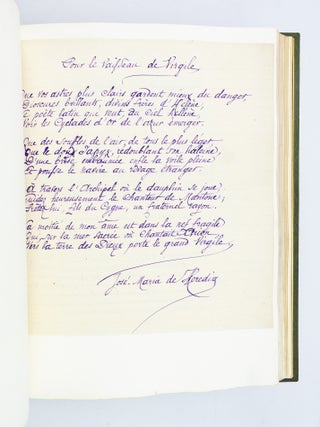 Pour le Vaisseau de Virgile
Que vos astres plus clairs gardent mieux du danger,
Dioscures brillants, divins frères d'Hélène,
Le poète latin qui veut, au ciel hellène,
Voir les Cyclades d'or de l'azur émerger.
Que des souffles de l'air, de tous le plus léger
Que le doux Iapyx, redoublant son haleine,
D'une brise embaumée enfle la voile pleine
Et pousse le navire au rivage étranger.
À travers l'Archipel où le dauphin se joue,
Guidez heureusement le Chanteur de Mantoue;
Prêtez-lui, fils du Cygne, un fraternel rayon.
La moitié de mon âme est dans la nef fragile
Qui, sur la mer sacrée où chantait Arion,
Vers la terre des Dieux porte le grand Virgile.
José-Maria de Heredia